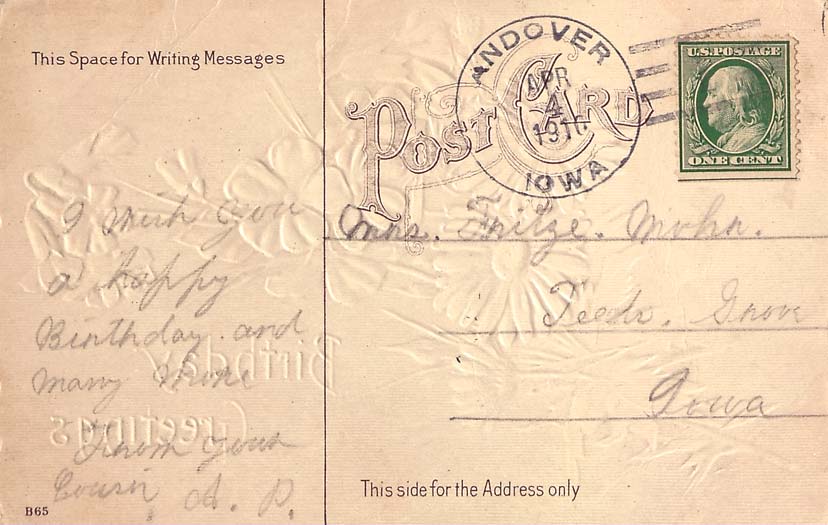 This Space for Writing Messages
POST CARD
ANDOVER
APR
4
1910
IOWA
U.S. POSTAGE
ONE CENT
I wish you
a happy
Birthday and
many more
From your
Cousin A. P.
Mrs. Fritze. Mohr.
Teeds. Grove
Iowa
Birthday
Greetings
This side for the Address only
B65